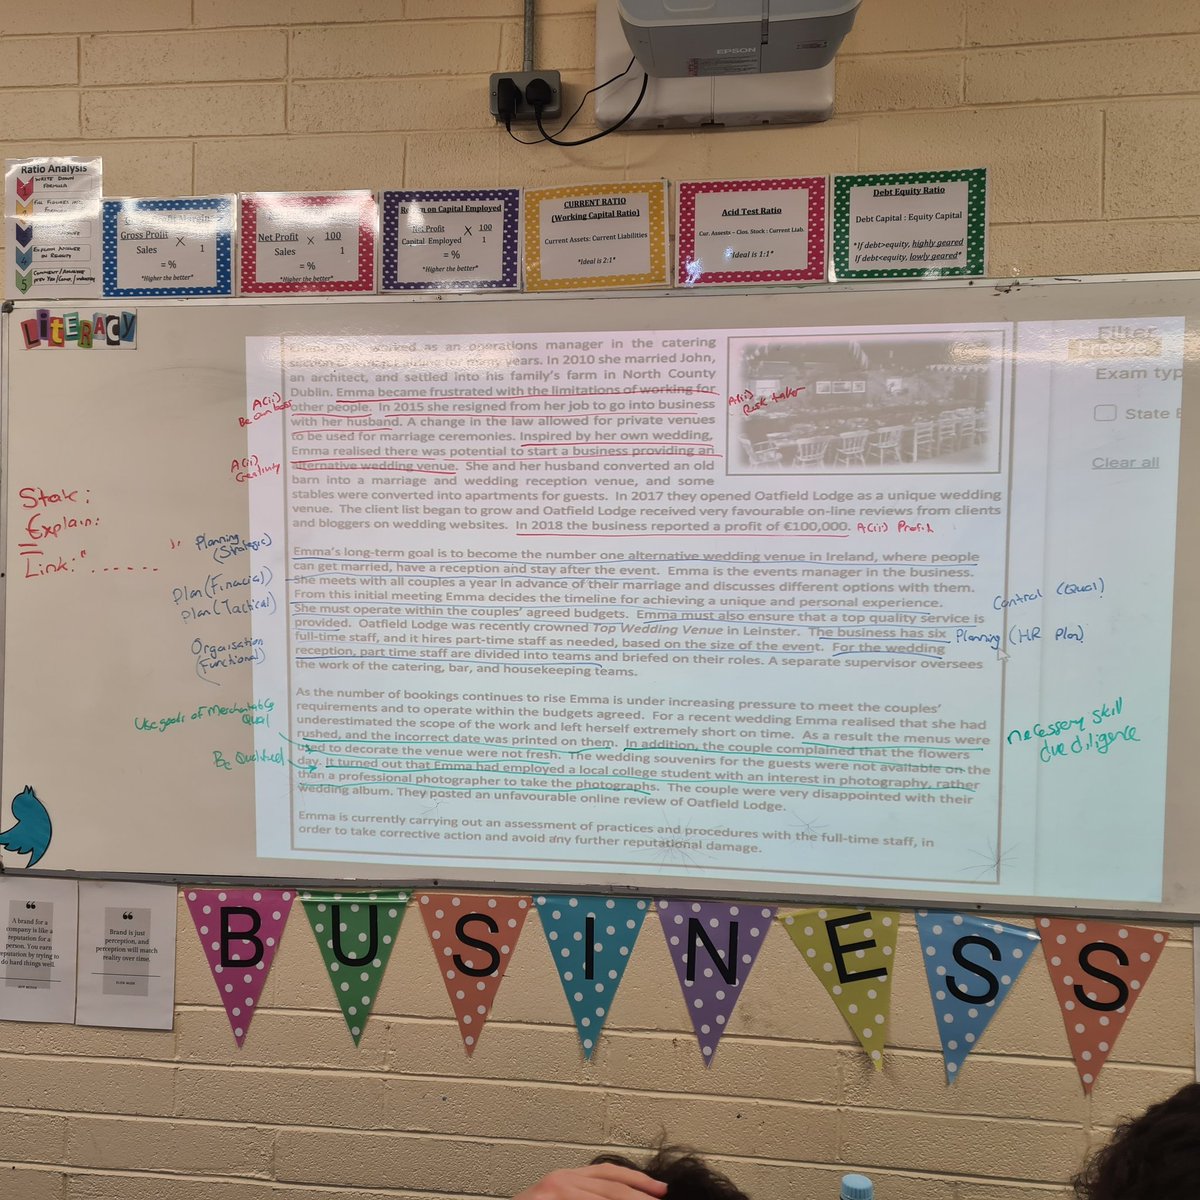 EPSON
Ratio Analysis
1 WRITE DOWN FORMULA
FILL FIGURES INTO
4 EXPLAIN ANSWER
5 COMMENT/ANALYSE
Gross Profit Margin
Gross Profit
Sales
X
1
= %
*Higher the better*
Net Profit
Sales
X 100
1
= %
*Higher the better*
Return on Capital Employed
Net Profit
Capital Employed
X 100
1
= %
*Higher the better*
CURRENT RATIO
(Working Capital Ratio)
Current Assets: Current Liabilities
*Ideal is 2:1*
Acid Test Ratio
Cur. Assests – Clos. Stock : Current Liab.
*Ideal is 1:1*
Debt Equity Ratio
Debt Capital : Equity Capital
*If debt>equity, highly geared*
If debt<equity, lowly geared*
LiteRACy
worked as an operations manager in the catering
for many years. In 2010 she married John,
an architect, and settled into his family's farm in North County
Dublin. Emma became frustrated with the limitations of working for
other people. In 2015 she resigned from her job to go into business
with her husband. A change in the law allowed for private venues
to be used for marriage ceremonies. Inspired by her own wedding,
Emma realised there was potential to start a business providing an
alternative wedding venue. She and her husband converted an old
barn into a marriage and wedding reception venue, and some
stables were converted into apartments for guests. In 2017 they opened Oatfield Lodge as a unique wedding
venue. The client list began to grow and Oatfield Lodge received very favourable on-line reviews from clients
and bloggers on wedding websites. In 2018 the business reported a profit of €100,000.
A(ii) Profit
Emma's long-term goal is to become the number one alternative wedding venue in Ireland, where people
can get married, have a reception and stay after the event. Emma is the events manager in the business.
She meets with all couples a year in advance of their marriage and discusses different options with them.
From this initial meeting Emma decides the timeline for achieving a unique and personal experience.
She must operate within the couples' agreed budgets. Emma must also ensure that a top quality service is
provided. Oatfield Lodge was recently crowned Top Wedding Venue in Leinster. The business has six
full-time staff, and it hires part-time staff as needed, based on the size of the event. For the wedding
reception, part time staff are divided into teams and briefed on their roles. A separate supervisor oversees
the work of the catering, bar, and housekeeping teams.
As the number of bookings continues to rise Emma is under increasing pressure to meet the couples'
requirements and to operate within the budgets agreed. For a recent wedding Emma realised that she had
underestimated the scope of the work and left herself extremely short on time. As a result the menus were
rushed, and the incorrect date was printed on them. In addition, the couple complained that the flowers
used to decorate the venue were not fresh. The wedding souvenirs for the guests were not available on the
day. It turned out that Emma had employed a local college student with an interest in photography, rather
than a professional photographer to take the photographs. The couple were very disappointed with their
wedding album. They posted an unfavourable online review of Oatfield Lodge.
Emma is currently carrying out an assessment of practices and procedures with the full-time staff, in
order to take corrective action and avoid any further reputational damage.
Filter
Freeze
Exam typ
State E
Clear all
A(ii)
Be own boss
A(ii)
Risk taker
A(ii)
State:
Explain:
Link:" ......
1. Planning
(Strategic)
plan (Financial)
plan (Tactical)
Organisation
(Functional)
Use goods of Merchantable
Qual
Be Qualified
Control (Qual)
Planning (HR Plan)
necessary skill
due diligence
A brand for a
company is like a
reputation for a
person. You earn
reputation by trying to
do hard things well.
JEFF BEZOS
Brand is just
perception, and
perception will match
reality over time.
ELON MUSK
BUSINESS